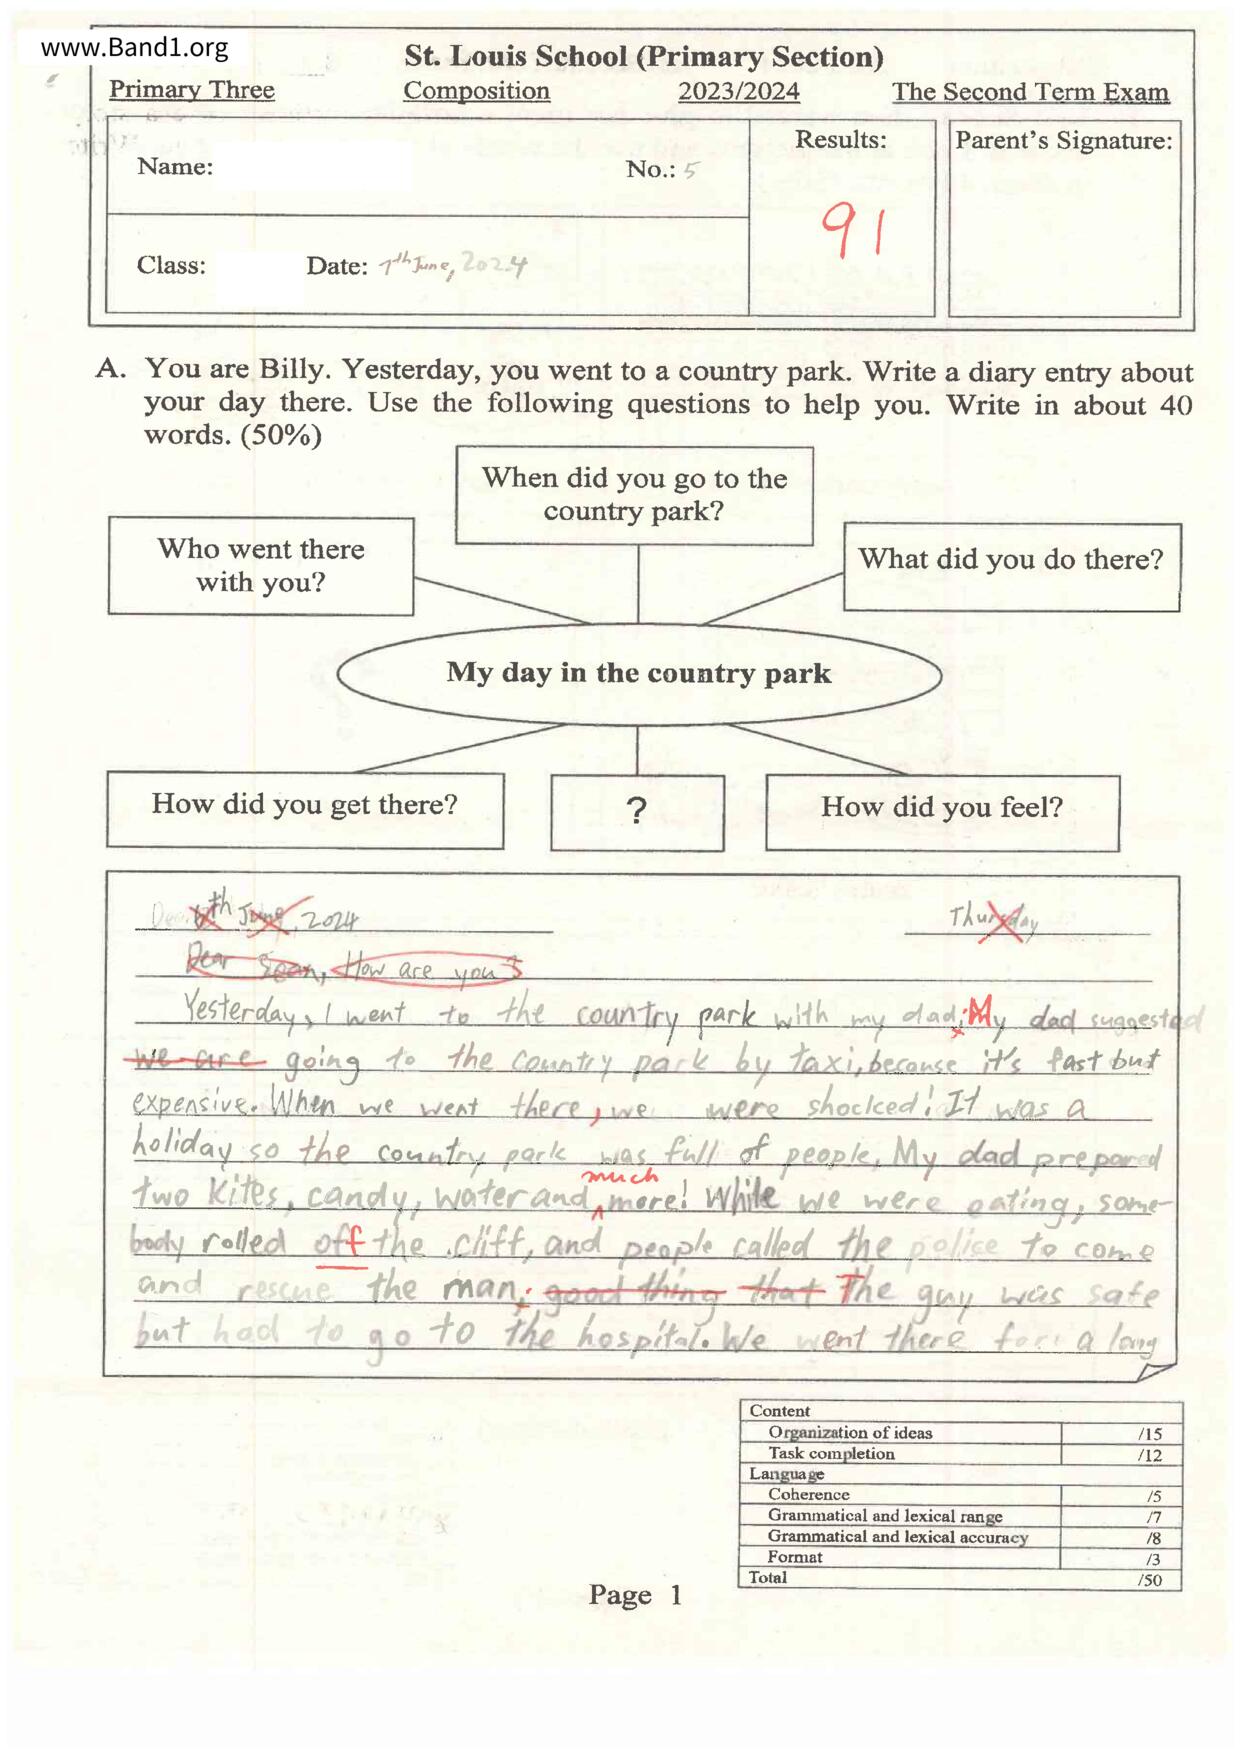 www.Band1.org
St. Louis School (Primary Section)
Primary Three Composition 2023/2024 The Second Term Exam
Name: No.: 5
Results:
Parent's Signature:
91
Class: Date: 7th June, 2024
A. You are Billy. Yesterday, you went to a country park. Write a diary entry about
your day there. Use the following questions to help you. Write in about 40
words. (50%)
When did you go to the
country park?
Who went there
with you?
What did you do there?
My day in the country park
How did you get there?
?
How did you feel?
6th June, 2024 Thursday
Dear Sean, How are you?
Yesterday, I went to the country park with my dad. My dad suggested
we are going to the country park by taxi, because it's fast but
expensive. When we went there, we were shocked! It was a
holiday so the country park was full of people, My dad prepared
much
two kites, candy, water and more! While we were eating, some-
body rolled off the cliff, and people called the police to come
and rescue the man, good thing that The guy was safe
but had to go to the hospital. We went there for a long
Content
Organization of ideas /15
Task completion /12
Language
Coherence /5
Grammatical and lexical range /7
Grammatical and lexical accuracy /8
Format /3
Total /50
Page 1